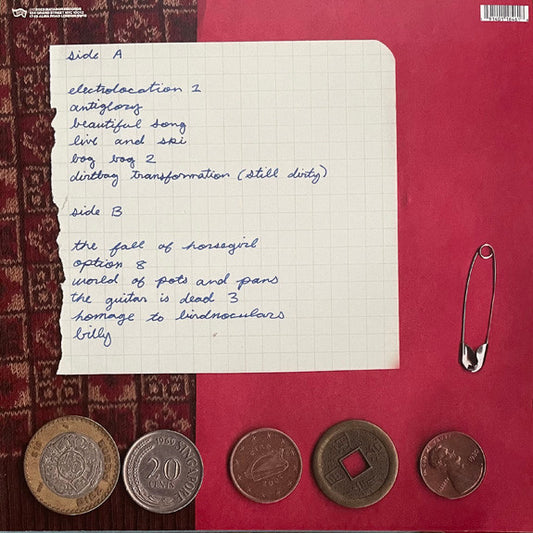 side A
electrolocation 2
antiglory
beautiful song
live and ski
bog bog 2
dirtbag transformation (still dirty)
side B
the fall of horsegirl
option 8
world of pots and pans
the guitar is dead 3
homage to birdnoculars
billy
1969 SINGAPORE
20
CENTS